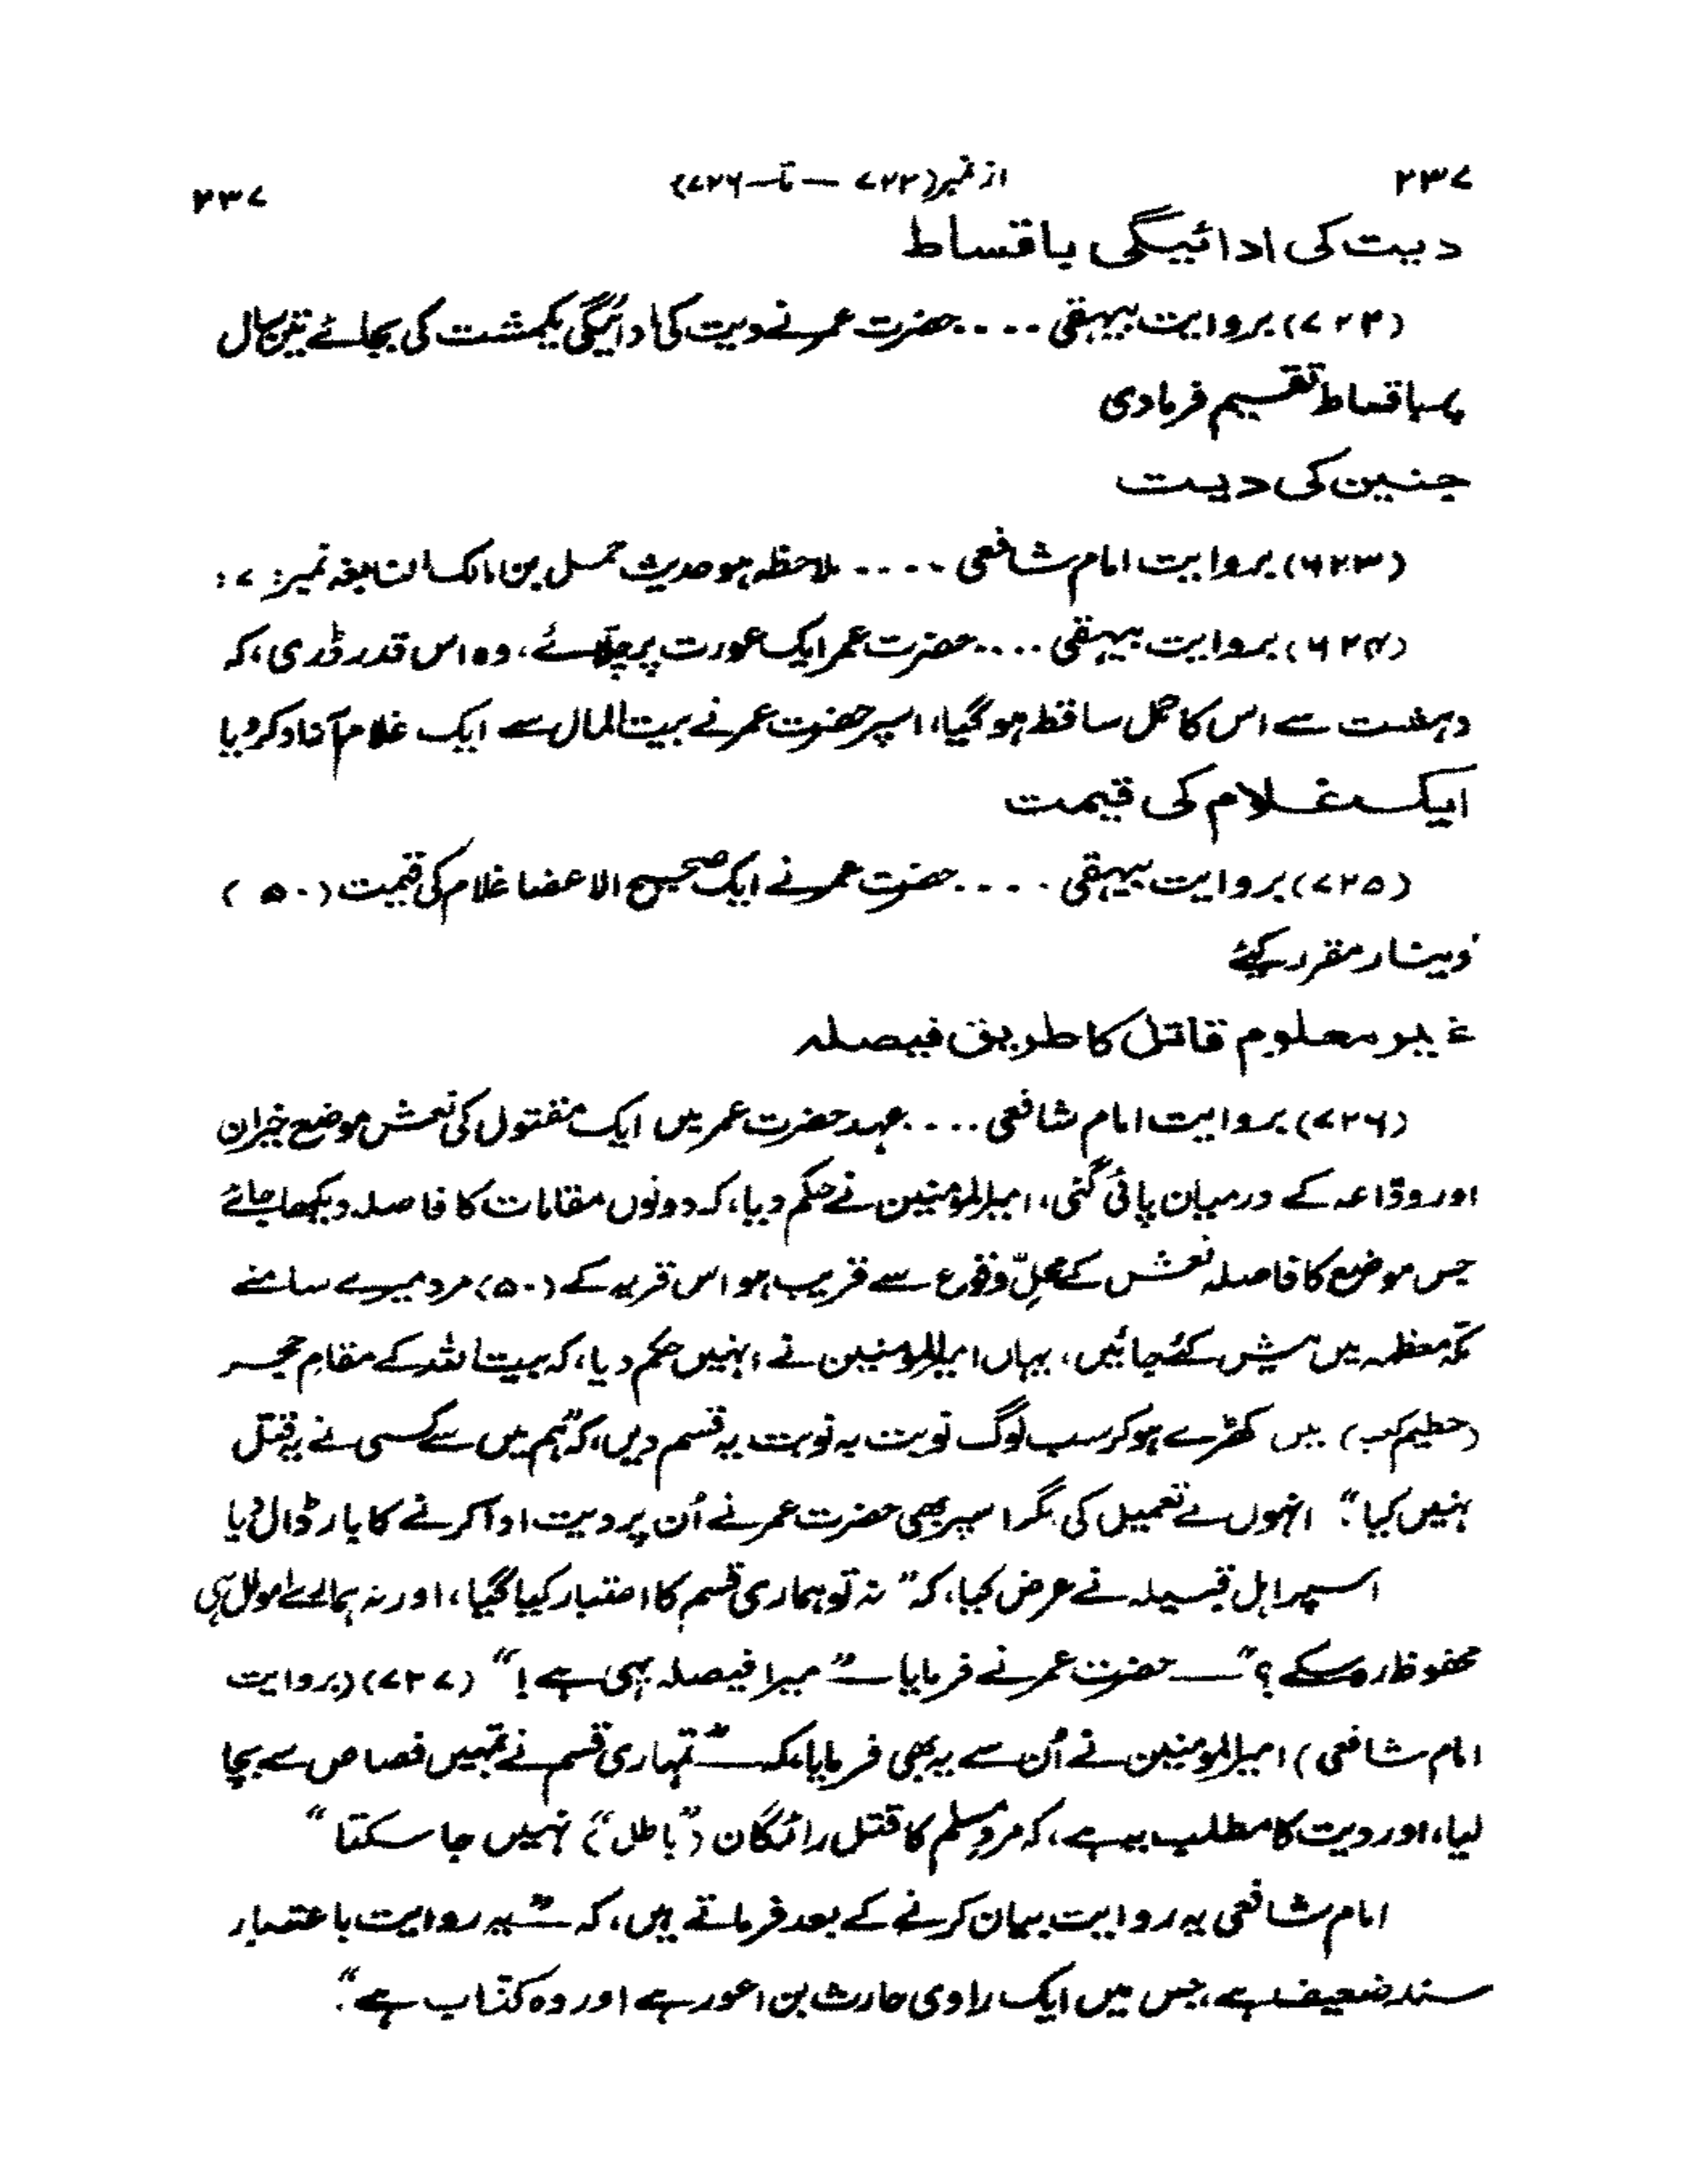 ۲۳۷ از نمبر(۷۲۲ — تا — ۷۲۶) ۲۳۷
دیت کی ادائیگی باقساط
(۷۲۲) بروایت بیہقی .... حضرت عمر نے دیت کی ادائیگی یکمشت کی بجائے تین سال
پر باقساط تقسیم فرمادی
جنین کی دیت
(۶۲۳) بروایت امام شافعی .... ملاحظہ ہو حدیث حمل بن مالک النابغہ نمبر: ۷ :
(۶۲۴) بروایت بیہقی .... حضرت عمر ایک عورت پر چلّائے، وہ اس قدر ڈری، کہ
دہشت سے اس کا حمل ساقط ہو گیا، اسپر حضرت عمر نے بیت المال سے ایک غلام آزاد کر دیا
ایک غلام کی قیمت
(۷۲۵) بروایت بیہقی .... حضرت عمر نے ایک صحیح الاعضا غلام کی قیمت (۵۰)
دینار مقرر کیئے
غیر معلوم قاتل کا طریق فیصلہ
(۷۲۶) بروایت امام شافعی .... عہد حضرت عمر میں ایک مقتول کی نعش موضع خیران
اور وداعہ کے درمیان پائی گئی، امیرالمؤمنین نے حکم دیا، کہ دونوں مقامات کا فاصلہ دیکھا جائے
جس موضع کا فاصلہ نعش کے محلِّ وقوع سے قریب ہو اس قریہ کے (۵۰) مرد میرے سامنے
مکۂ معظمہ میں پیش کئے جائیں، یہاں امیرالمومنین نے انہیں حکم دیا، کہ بیت اللہ کے مقامِ حجر
(حطیم کعبہ) میں کھڑے ہو کر سب لوگ نوبت بہ نوبت یہ قسم دیں، کہ "ہم میں سے کسی نے یہ قتل
نہیں کیا" انہوں نے تعمیل کی مگر اسپر بھی حضرت عمر نے اُن پر دیت ادا کرنے کا بار ڈال دیا
اسپر اہل قبیلہ نے عرض کیا، کہ "نہ تو ہماری قسم کا اعتبار کیا گیا، اور نہ ہمارے اموال ہی
محفوظ رہ سکے؟" — حضرت عمر نے فرمایا — "میرا فیصلہ یہی ہے!" (۷۲۷) (بروایت
امام شافعی) امیرالمومنین نے اُن سے یہ بھی فرمایا، کہ — "تمہاری قسم نے تمہیں قصاص سے بچا
لیا، اور دیت کا مطلب یہ ہے، کہ مردِ مسلم کا قتل رائگان ("باطل") نہیں جا سکتا"
امام شافعی یہ روایت بیان کرنے کے بعد فرماتے ہیں، کہ — "یہ روایت باعتبار
سند ضعیف ہے، جس میں ایک راوی حارث بن اعور ہے اور وہ کذاب ہے"۔